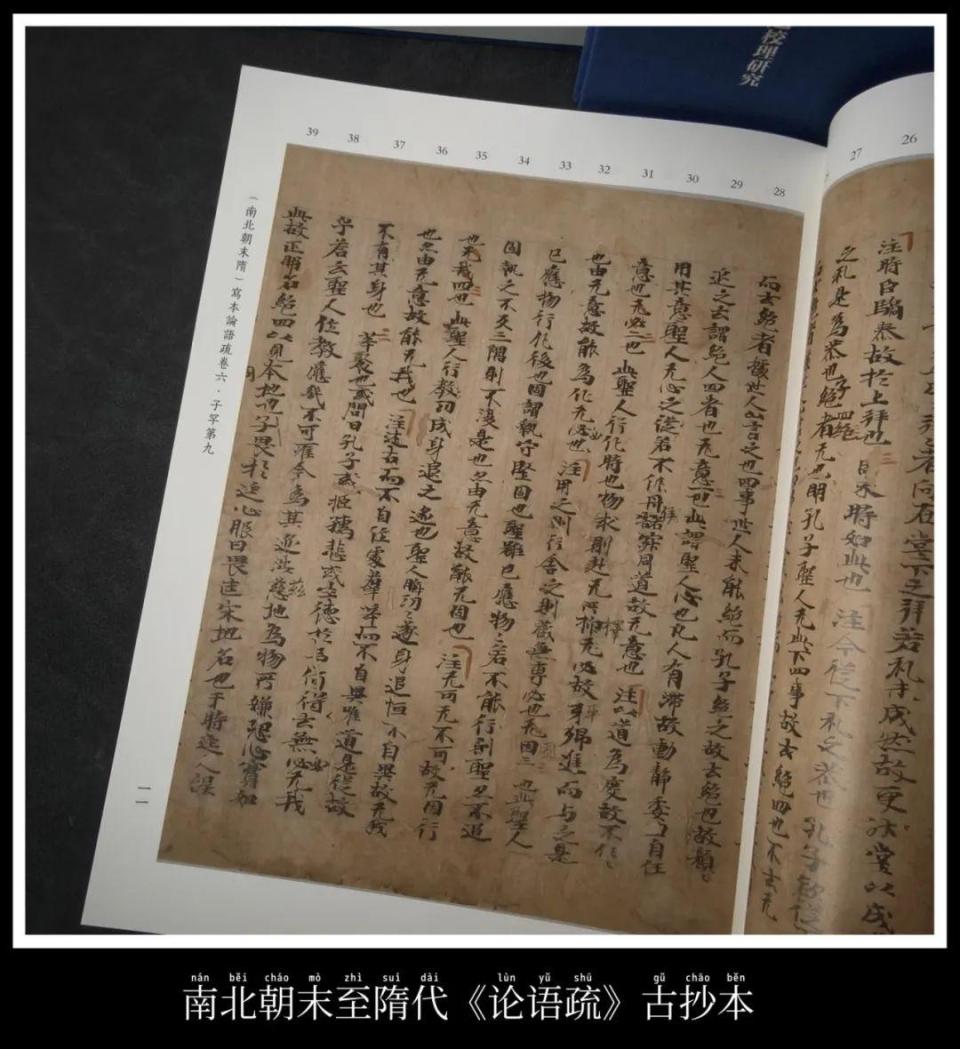 校理研究
39 38 37 36 35 34 33 32 31 30 29 28 27 26
拜者向在堂下之拜若礼才成然故更升堂以成
注時臣驕泰故於上拜也 時如此也 注今從下礼之恭也 孔子
之礼是為恭也 子四絕
絕者无也明孔子聖人无此下四事故云絕四也不云无
而云絕者據世人以言之也四事世人未能絕而孔子絕之故云絕也故顏
延之云謂絕人四者也无意一也此謂聖人心也凡人有滯故動静委曲自任
用其意聖人无心之從若不係舟豁寂同道故无意也 注以道為度故不任
意也无必二也此聖人行化時也物求則赴无所擇无必故互鄉進而与之是
也由无意故能為化无必也 注用之則行舍之則藏無専必也无固三也此聖人
已應物行化後也固謂執守堅固也聖雖已應物之若不能行則聖亦不追
固執之不反三隅則不復是也亦由无意故能无固也 注无可无不可故无固行
也无我四也此聖人行教功成身退之迹也聖人晦功之迹身退恒不自異故无我
也亦由无意故能无我也 注述古而不自作處群萃而不自異唯道是從故
不有其身也 萃聚也或問曰孔子或拒孺悲或生德於予何得云無必无我
乎荅云聖人作教應機不可准今為其迹涉茲地為物所嫌恐心實如
此故正明若絕四以見本地也子畏於匡心服曰畏匡宋地名也于時匡人誤
（南北朝末隋）寫本論語疏卷六·子罕第九
一一
nán běi cháo mò zhì suí dài lùn yǔ shū gǔ chāo běn
南北朝末至隋代《论语疏》古抄本